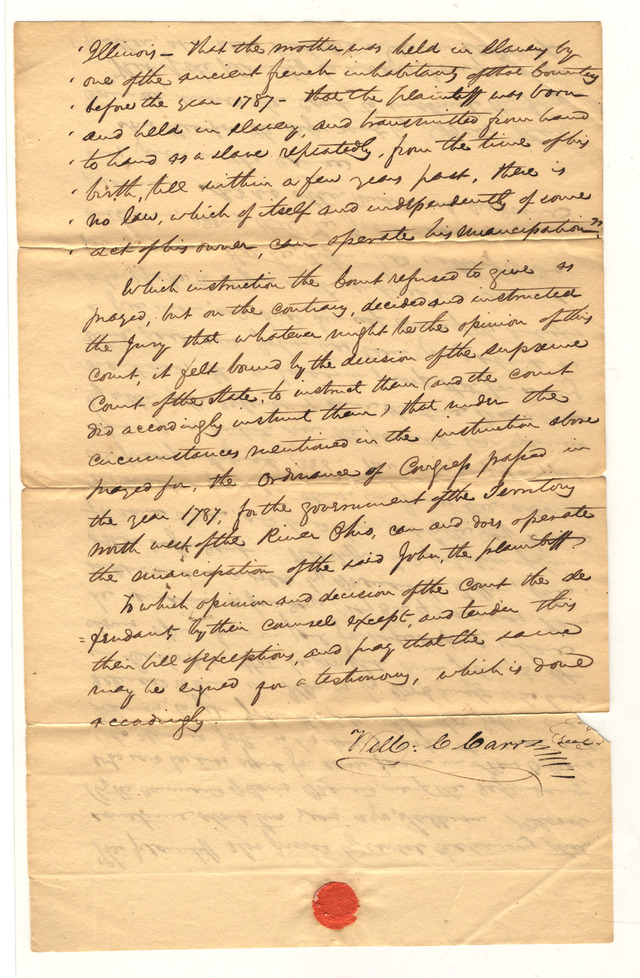 ' Illinois – that the mother was held in slavery by
' one of the ancient french inhabitants of that Country
' before the year 1787 – that the plaintiff was born
' and held in slavery, and transmitted from hand
' to hand as a slave repeatedly, from the time of his
' birth, till within a few years past, there is
' no law, which of itself and independently of some
' act of his owner, can operate his emancipation".
Which instruction the Court refused to give as
prayed, but on the contrary, decided and instructed
the Jury that whatever might be the opinion of this
court, it felt bound by the decision of the supreme
Court of the state, to instruct them (and the court
did accordingly instruct them) that under the
circumstances mentioned in the instruction above
prayed for, the Ordinance of Congress passed in
the year 1787, for the government of the Territory
North west of the River Ohio, can and does operate
the emancipation of the said John, the plaintiff.
To which opinion and decision of the Court the de
=fendants by their counsel except, and tender this
their bill of exceptions, and pray that the same
may be signed for a testimony, which is done
accordingly.
Will. C Carr
(seal)